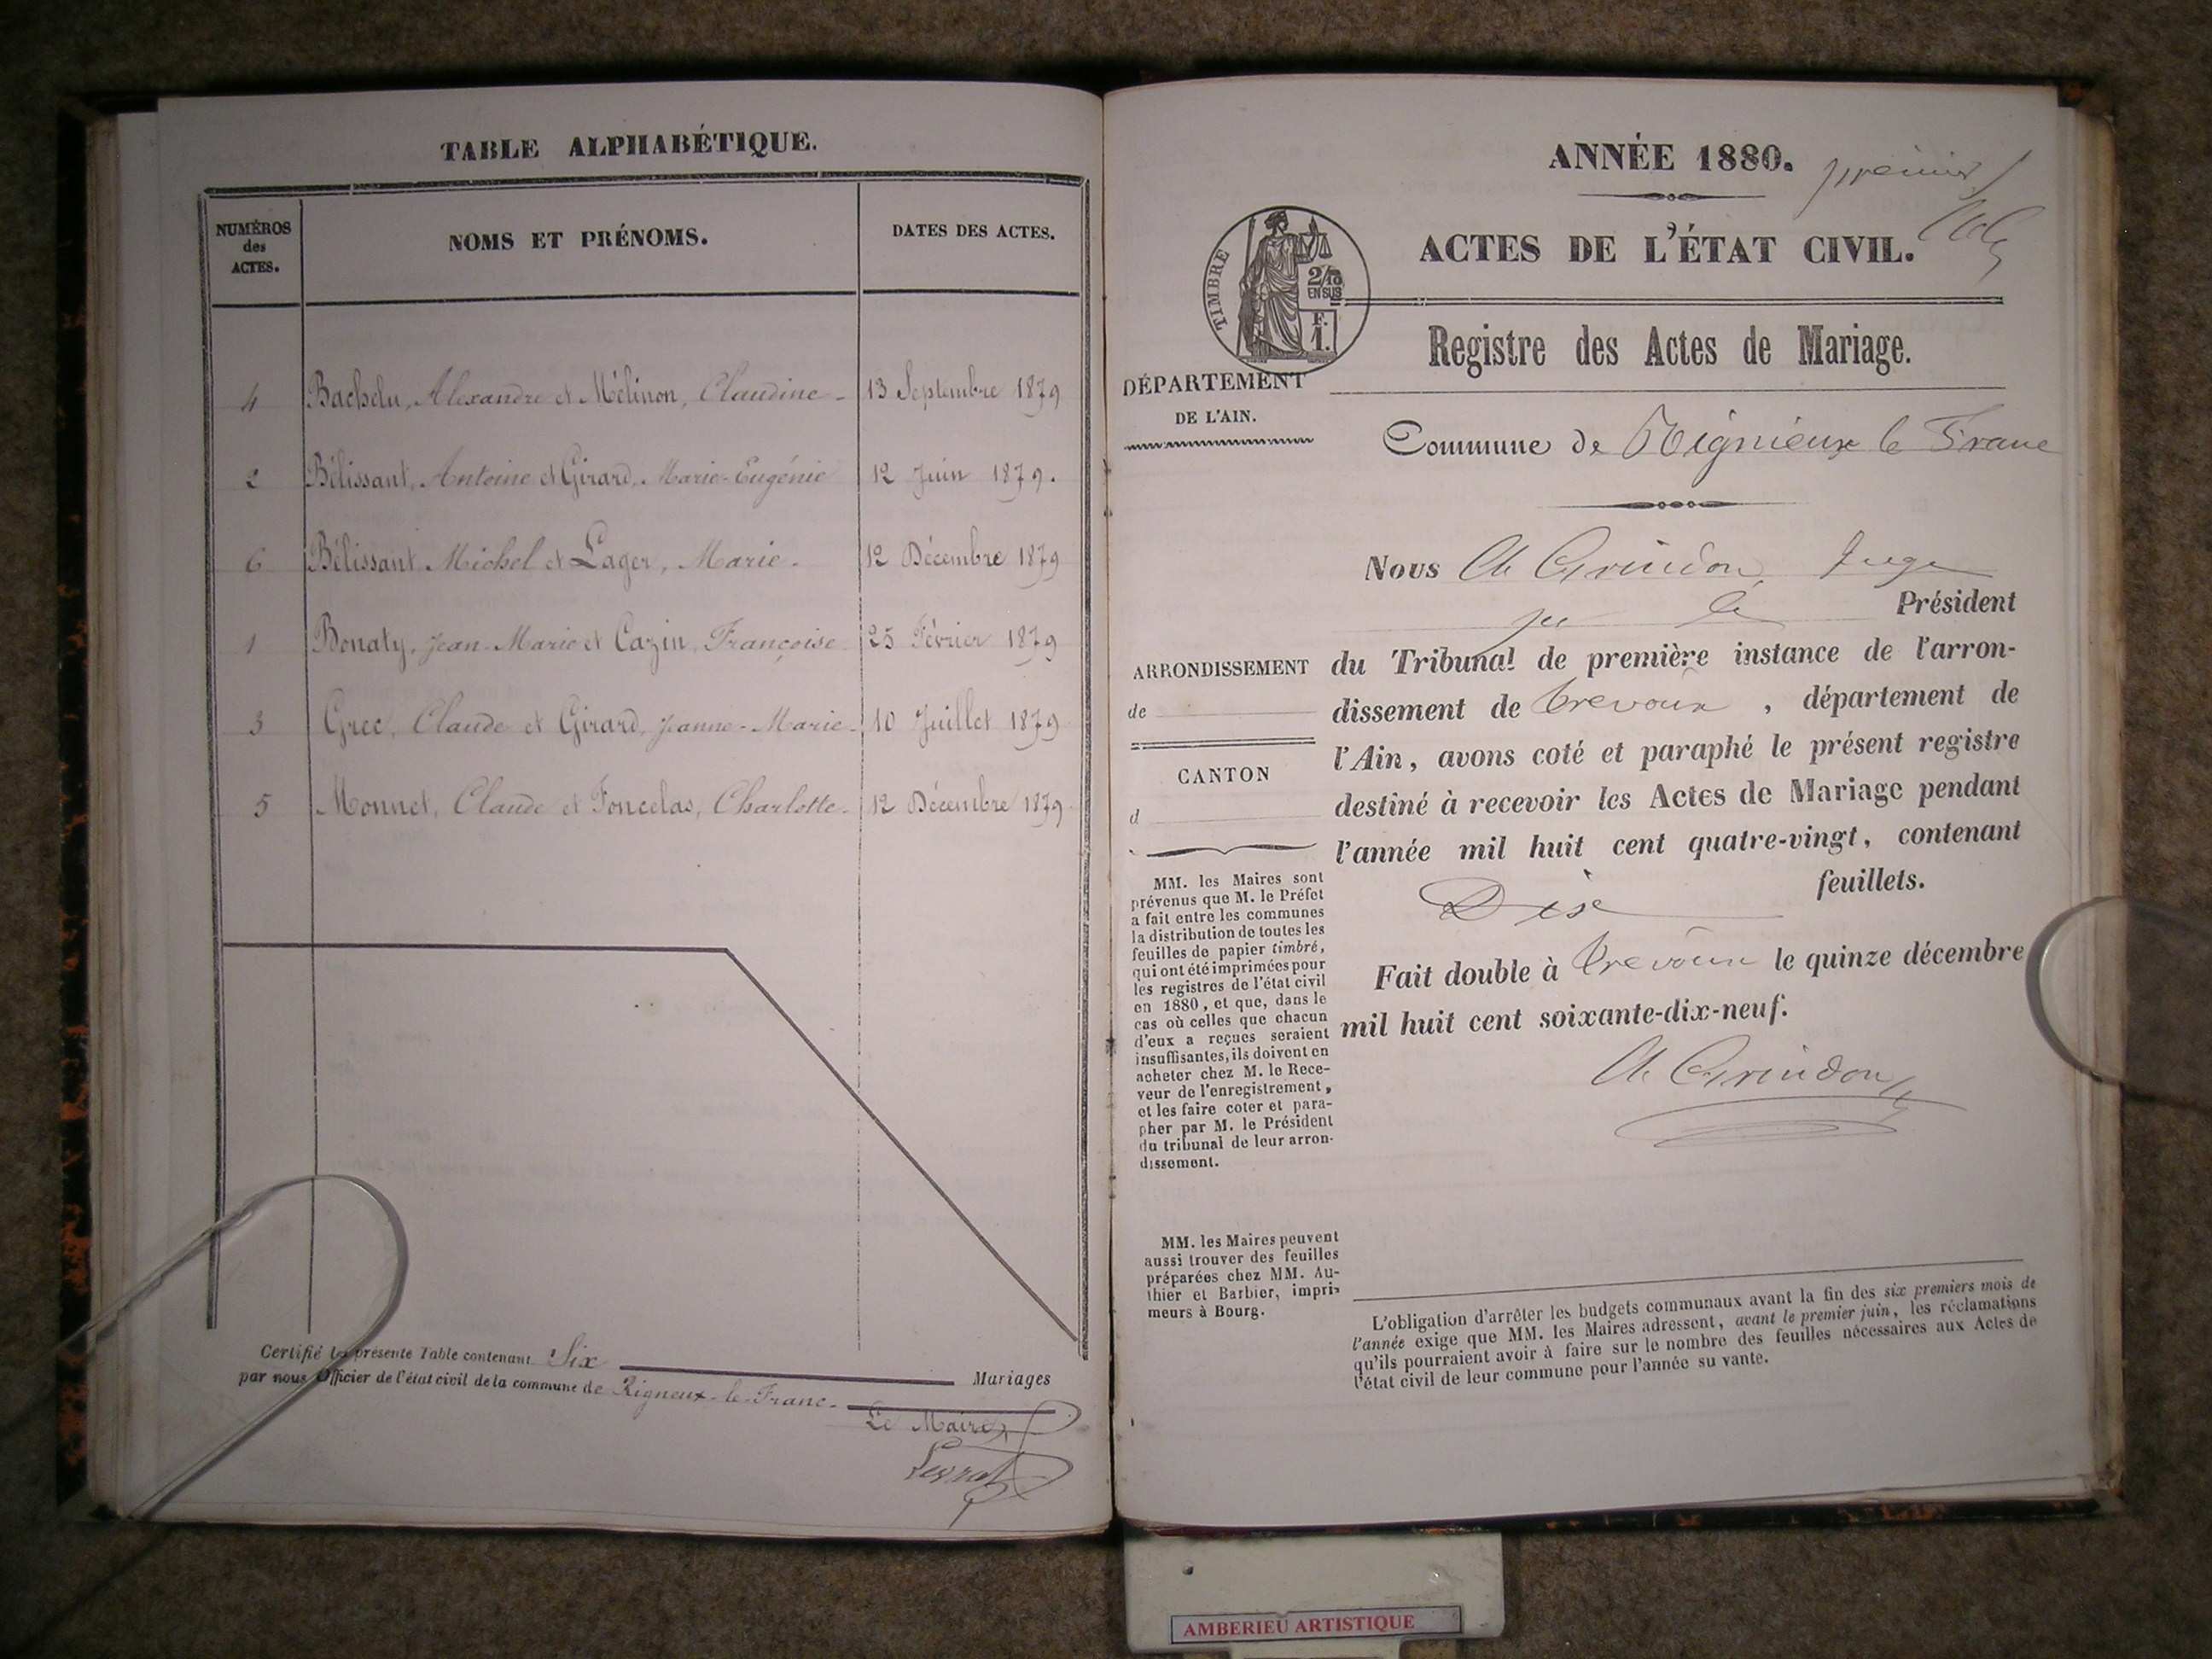 TABLE ALPHABÉTIQUE.
NUMÉROS
des
ACTES.
NOMS ET PRÉNOMS.
DATES DES ACTES.
4 Bachelu, Alexandre et Mélinon, Claudine - 13 Septembre 1879
2 Bélissant, Antoine et Girard, Marie-Eugénie 12 Juin 1879.
6 Bélissant Michel et Lager, Marie. 12 Décembre 1879
1 Bonaty, Jean-Marie et Cazin, Françoise 25 Février 1879
3 Grec, Claude et Girard, Jeanne-Marie - 10 Juillet 1879
5 Monnet, Claude et Foncelas, Charlotte - 12 Décembre 1879
Certifié la présente Table contenant Six Mariages
par nous Officier de l'état civil de la commune de Rigneux-le-Franc -
Le Maire,
ANNÉE 1880.
premier
ACTES DE L'ÉTAT CIVIL.
TIMBRE
2/10
EN SUS
F.
1.
Registre des Actes de Mariage.
DÉPARTEMENT
DE L'AIN.
Commune de Rignieux le Franc
Nous Ch Grindon, Juge
Président
du Tribunal de première instance de l'arron-
dissement de Trevoux, département de
l'Ain, avons coté et paraphé le présent registre
destiné à recevoir les Actes de Mariage pendant
l'année mil huit cent quatre-vingt, contenant
Dix feuillets.
Fait double à Trevoux le quinze décembre
mil huit cent soixante-dix-neuf.
Ch Grindon
ARRONDISSEMENT
de
CANTON
d
MM. les Maires sont
prévenus que M. le Préfet
a fait entre les communes
la distribution de toutes les
feuilles de papier timbré,
qui ont été imprimées pour
les registres de l'état civil
en 1880, et que, dans le
cas où celles que chacun
d'eux a reçues seraient
insuffisantes, ils doivent en
acheter chez M. le Rece-
veur de l'enregistrement,
et les faire coter et para-
pher par M. le Président
du tribunal de leur arron-
dissement.
MM. les Maires peuvent
aussi trouver des feuilles
préparées chez MM. Au-
thier et Barbier, impri-
meurs à Bourg.
L'obligation d'arrêter les budgets communaux avant la fin des six premiers mois de
l'année exige que MM. les Maires adressent, avant le premier juin, les réclamations
qu'ils pourraient avoir à faire sur le nombre des feuilles nécessaires aux Actes de
l'état civil de leur commune pour l'année su vante.
AMBERIEU ARTISTIQUE